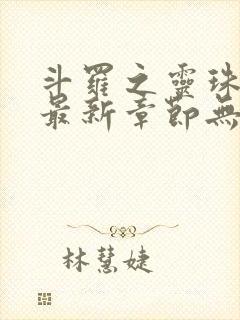 斗羅之靈珠
最新章節無
林慧婕